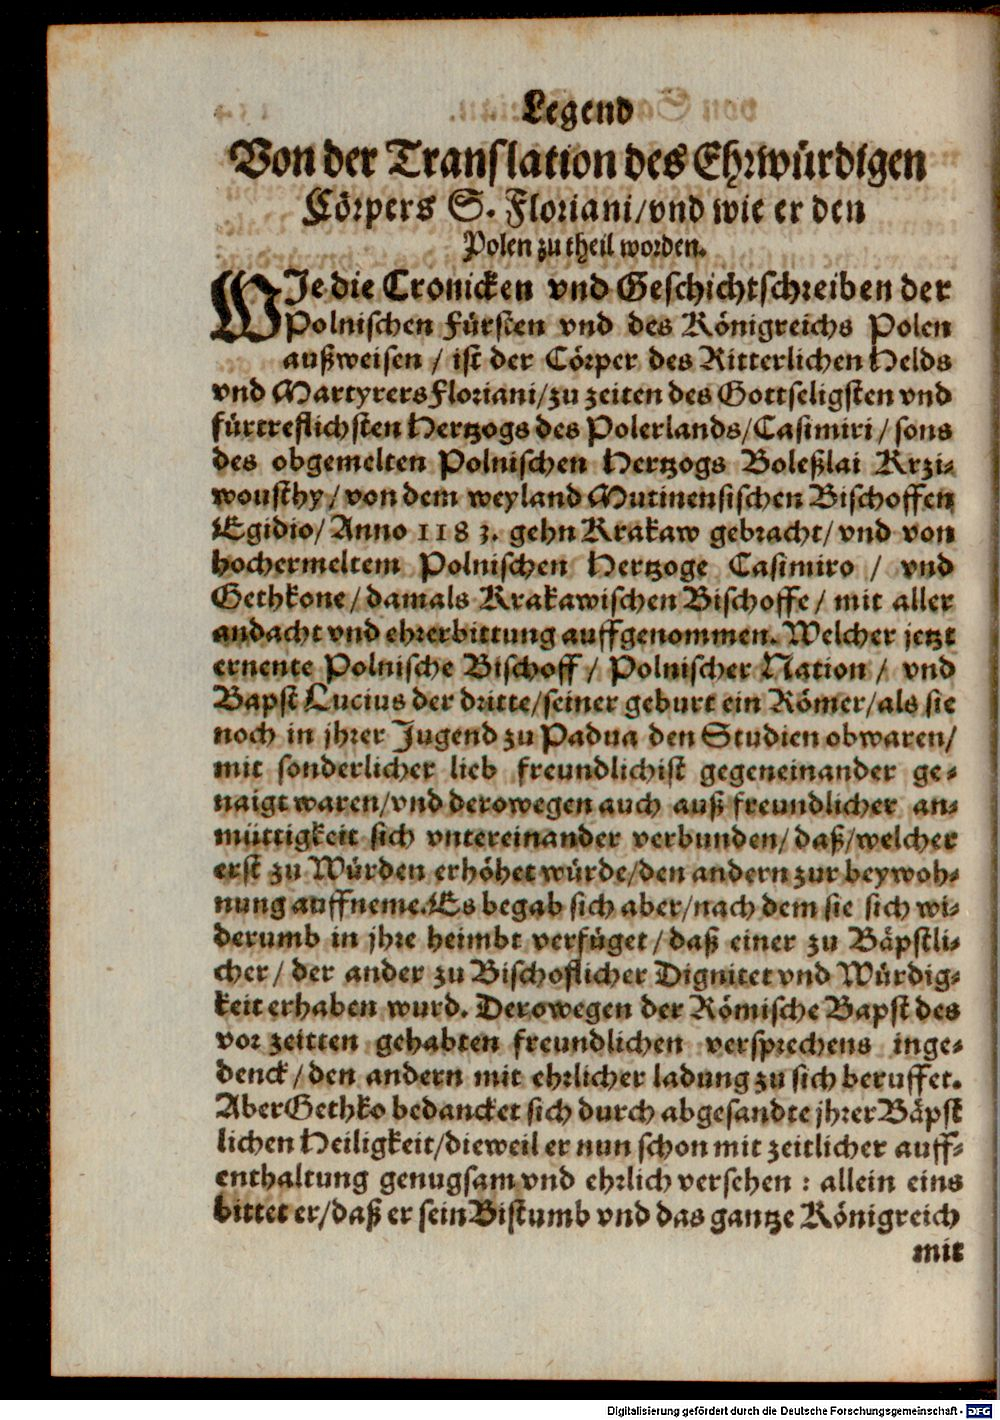 Legend
Von der Translation des Ehrwürdigen
Cörpers S. Floriani/vnd wie er den
Polen zu theil worden.
WJe die Cronicken vnd Geschichtschreiben der
Polnischen Fürsten vnd des Königreichs Polen
außweisen / ist der Cörper des Ritterlichen Helds
vnd Martyrers Floriani/zu zeiten des Gottseligsten vnd
fürtreflichsten Hertzogs des Polerlands/Casimiri / sons
des obgemelten Polnischen Hertzogs Boleßlai Krzi-
wousthy / von dem weyland Mutinensischen Bischoffen
Egidio/ Anno 1183. gehn Krakaw gebracht/ vnd von
hochermeltem Polnischen Hertzoge Casimiro / vnd
Gethkone / damals Krakawischen Bischoffe / mit aller
andacht vnd ehrerbittung auffgenommen. Welcher jetzt
ernente Polnische Bischoff / Polnischer Nation / vnd
Bapst Lucius der dritte/seiner geburt ein Römer/als sie
noch in jhrer Jugend zu Padua den Studien obwaren/
mit sonderlicher lieb freundlichist gegeneinander ge-
naigt waren/vnd derowegen auch auß freundlicher an-
müttigkeit sich vntereinander verbunden/ daß/welcher
erst zu Würden erhöhet würde/den andern zur beywoh-
nung auffneme. Es begab sich aber/nach dem sie sich wi-
derumb in jhre heimbt verfüget / daß einer zu Bäpstli-
cher / der ander zu Bischoflicher Dignitet vnd Würdig-
keit erhaben wurd. Derowegen der Römische Bapst des
vor zeitten gehabten freundlichen versprechens inge-
denck / den andern mit ehrlicher ladung zu sich beruffet.
Aber Gethko bedancket sich durch abgesandte jhrer Bäpst
lichen Heiligkeit/dieweil er nun schon mit zeitlicher auff-
enthaltung genugsam vnd ehrlich versehen : allein eins
bittet er/daß er sein Bistumb vnd das gantze Königreich
mit
Digitalisierung gefördert durch die Deutsche Forschungsgemeinschaft - DFG